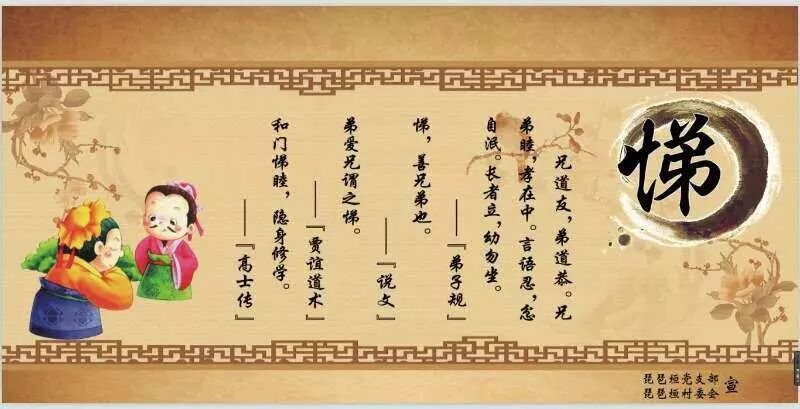 悌
兄道友，弟道恭。兄
弟睦，孝在中。言语忍，忿
自泯。长者立，幼勿坐。
——『弟子规』
悌，善兄弟也。
——『说文』
弟爱兄谓之悌。
——『贾谊道术』
和门悌睦，隐身修学。
——『高士传』
琵琶桓党支部
琵琶桓村委会
宣